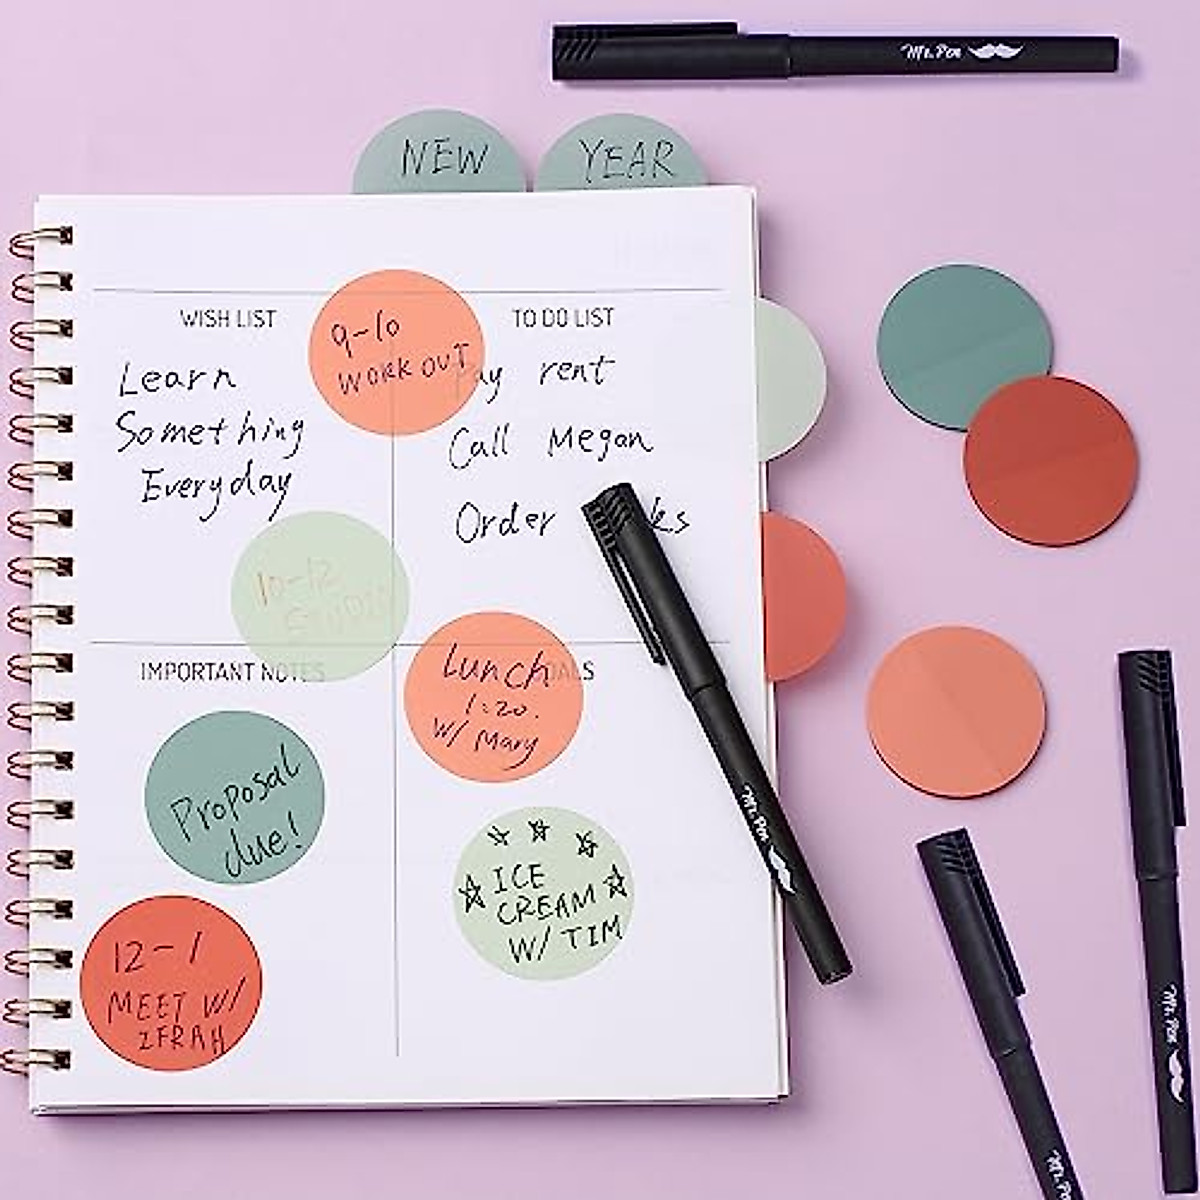 Mr. Pen
NEW YEAR
WISH LIST
Learn
Something
Everyday
9-10
WORK OUT
TO DO LIST
Pay rent
Call Megan
Order
10-12
IMPORTANT NOTES
Lunch
1:20.
W/ Mary
Proposal
due!
ICE
CREAM
W/ TIM
12-1
MEET W/
ZFRAH
Mr. Pen
Mr. Pen
Mr. Pen